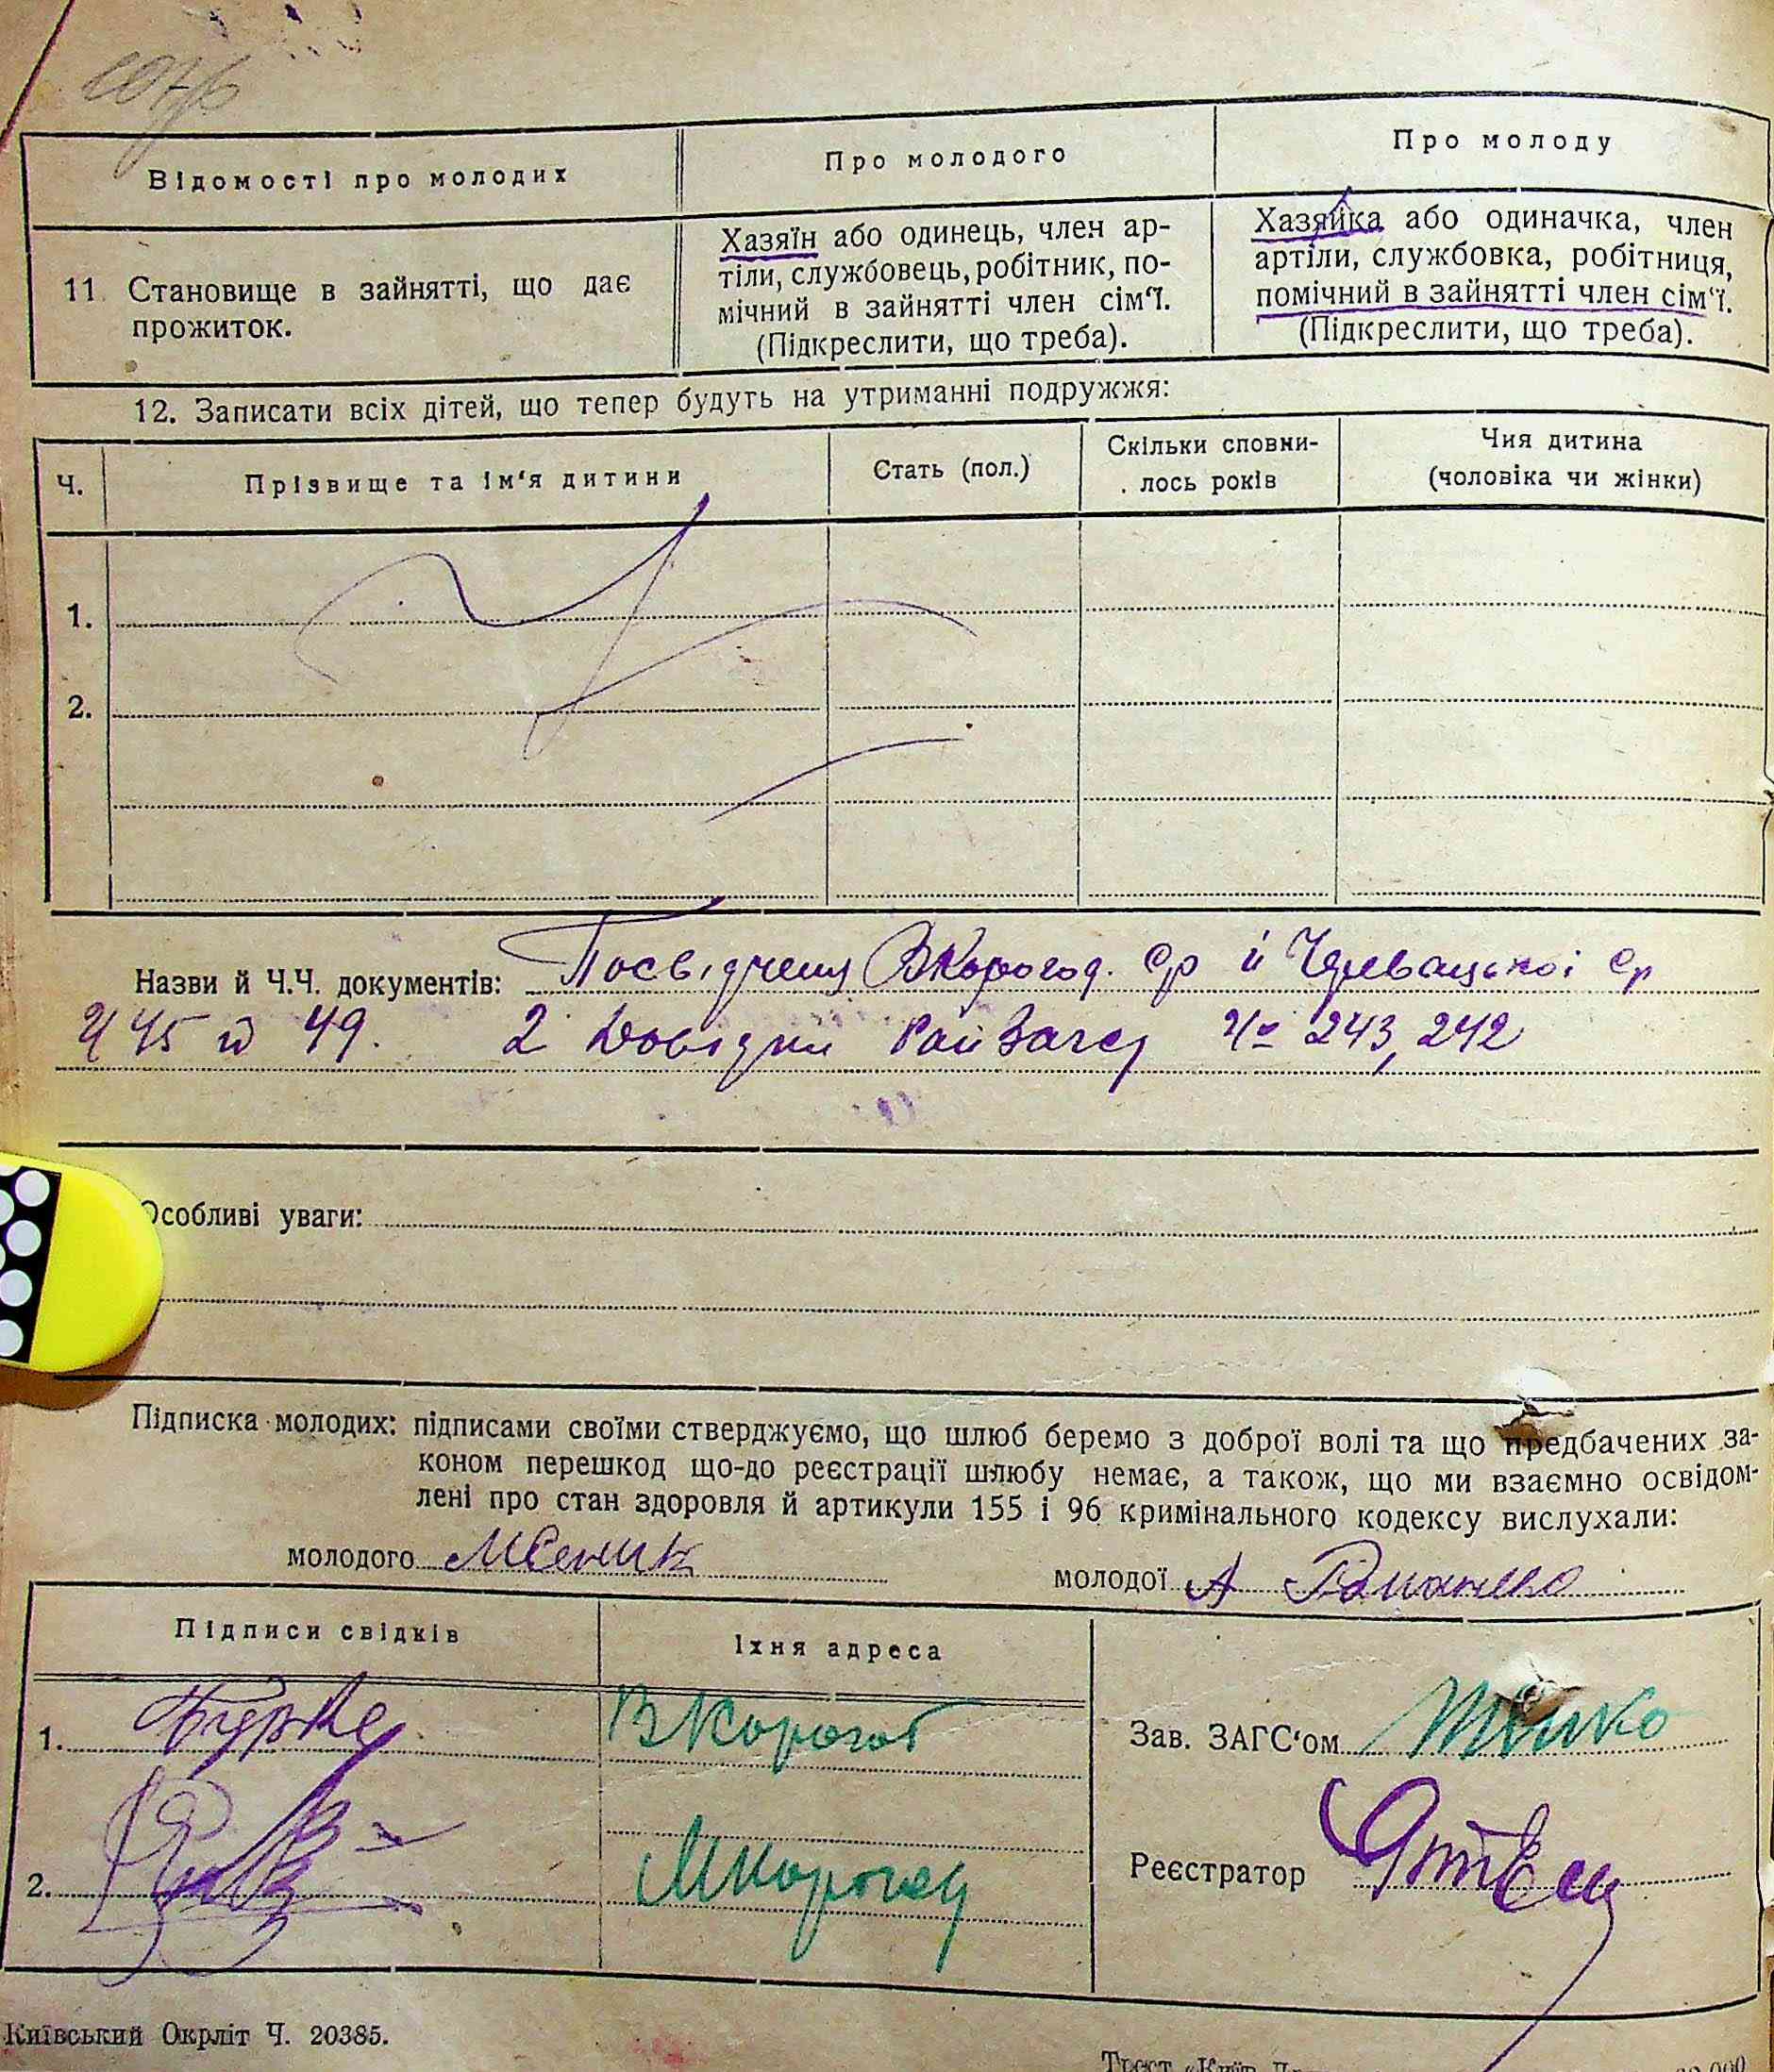 Відомості про молодих
Про молодого
Про молоду
11. Становище в зайнятті, що дає
прожиток.
Хазяїн або одинець, член ар-
тіли, службовець, робітник, по-
мічний в зайнятті член сім‘ї.
(Підкреслити, що треба).
Хазяйка або одиначка, член
артіли, службовка, робітниця,
помічний в зайнятті член сім‘ї.
(Підкреслити, що треба).
12. Записати всіх дітей, що тепер будуть на утриманні подружжя:
Ч.
Прізвище та ім‘я дитини
Стать (пол.)
Скільки сповни-
лось років
Чия дитина
(чоловіка чи жінки)
1.
2.
Назви й Ч.Ч. документів: Посвідченя ВКорогод. Ср й Черевацької Ср
Ч 45 й 49. 2 Довідки РайЗагсу 243, 242
Особливі уваги:
Підписка молодих: підписами своїми стверджуємо, що шлюб беремо з доброї волі та що предбачених за-
коном перешкод що-до реєстрації шлюбу немає, а також, що ми взаємно освідом-
лені про стан здоровля й артикули 155 і 96 кримінального кодексу вислухали:
молодого
молодої А Романенко
Підписи свідків
Їхня адреса
1. ВКорогод
Зав. ЗАГС‘ом
2.
Реєстратор
Київський Окрліт Ч. 20385.